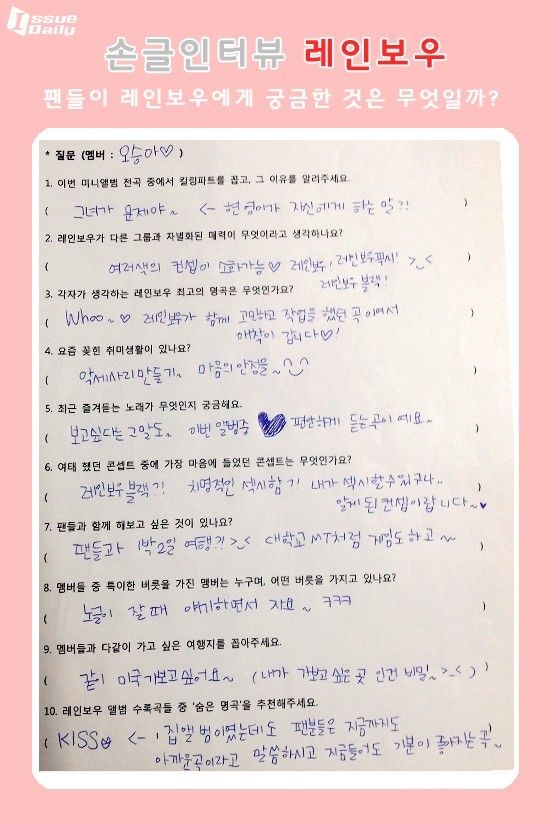 Issue
Daily
손글인터뷰 레인보우
팬들이 레인보우에게 궁금한 것은 무엇일까?
* 질문 (멤버 : 오승아♡ )
1. 이번 미니앨범 전곡 중에서 킬링파트를 꼽고, 그 이유를 알려주세요.
( 그녀가 문제야~ <- 현영이가 자신에게 하는 말?! )
2. 레인보우가 다른 그룹과 차별화된 매력이 무엇이라고 생각하나요?
( 여러색의 컨셉이 소화가능♡ 레인보우! 레인보우픽시! >_<
레인보우블랙!
3. 각자가 생각하는 레인보우 최고의 명곡은 무엇인가요?
( Whoo~♡ 레인보우가 함께 고민하고 작업을 했던 곡이여서
애착이 갑니다♡! )
4. 요즘 꽂힌 취미생활이 있나요?
( 악세사리만들기~ 마음의안정을~^_^ )
5. 최근 즐겨듣는 노래가 무엇인지 궁금해요.
( 보고싶다는 그말도~ 이번 앨범중 ♥ 편안하게 듣는곡이예요~ )
6. 여태 했던 콘셉트 중에 가장 마음에 들었던 콘셉트는 무엇인가요?
( 레인보우블랙?! 치명적인 섹시함?! 내가 섹시할수있구나~
알게된 컨셉이랍니다~♥
7. 팬들과 함께 해보고 싶은 것이 있나요?
( 팬들과 1박2일 여행?! >_< 대학교MT처럼 게임도하고~ )
8. 멤버들 중 특이한 버릇을 가진 멤버는 누구며, 어떤 버릇을 가지고 있나요?
( 노을이 잘때 얘기하면서 자요~ ㅋㅋㅋ )
9. 멤버들과 다같이 가고 싶은 여행지를 꼽아주세요.
( 같이 미국가보고싶어요~ (내가 가보고싶은곳 인건 비밀~>_<) )
10. 레인보우 앨범 수록곡들 중 '숨은 명곡'을 추천해주세요.
( KISS <- 1집앨범이였는데도 팬분들은 지금까지도
아까운곡이라고 말씀하시고 지금들어도 기분이 좋아지는곡~